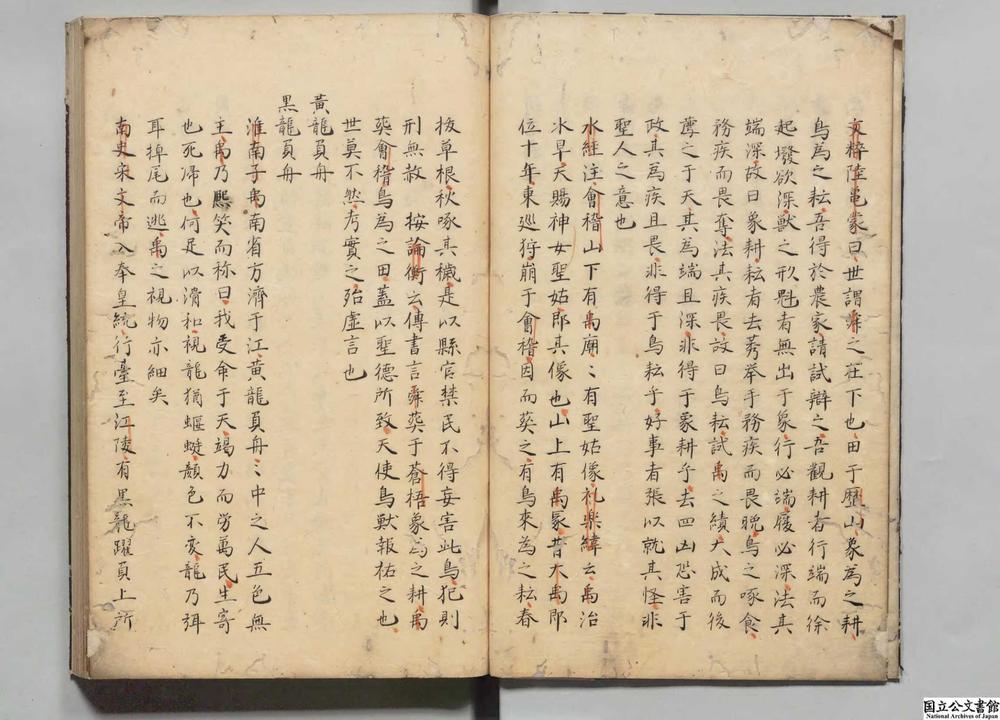 文粹陸龜蒙曰世謂舜之在下也田于歷山象為之耕
鳥為之耘吾得於農家請試辯之吾觀耕者行端而徐
起墢欲深獸之形魁者無出于象行必端履必深法其
端深故曰象耕耘者去莠举手務疾而畏晚鳥之啄食
務疾而畏奪法其疾畏故曰鳥耘試禹之績大成而後
薦之于天其為端且深非得于象耕乎去四凶恐害于
政其為疾且畏非得于鳥耘乎好事者張以就其怪非
聖人之意也
水經注會稽山下有禹廟〻有聖姑像礼楽緯云禹治
水旱天賜神女聖姑即其像也山上有禹冢昔大禹即
位十年東巡狩崩于會稽因而葬之有鳥來為之耘春
拔草根秋啄其穢是以縣官禁民不得妄害此鳥犯則
刑無赦　按論衡云傳書言舜葬于蒼梧象為之耕禹
葬會稽鳥為之田蓋以聖德所致天使鳥獸報祐之也
世莫不然考實之殆虛言也
黃龍負舟
黒龍負舟
淮南子禹南省方濟于江黃龍負舟〻中之人五色無
主禹乃熈笑而称曰我受命于天竭力而労萬民生寄
也死帰也何足以滑和視龍猶蝘蜓顔色不変龍乃弭
耳掉尾而逃禹之視物亦細矣
南史宋文帝入奉皇統行臺至江陵有黒龍躍負上所
国立公文書館
National Archives of Japan